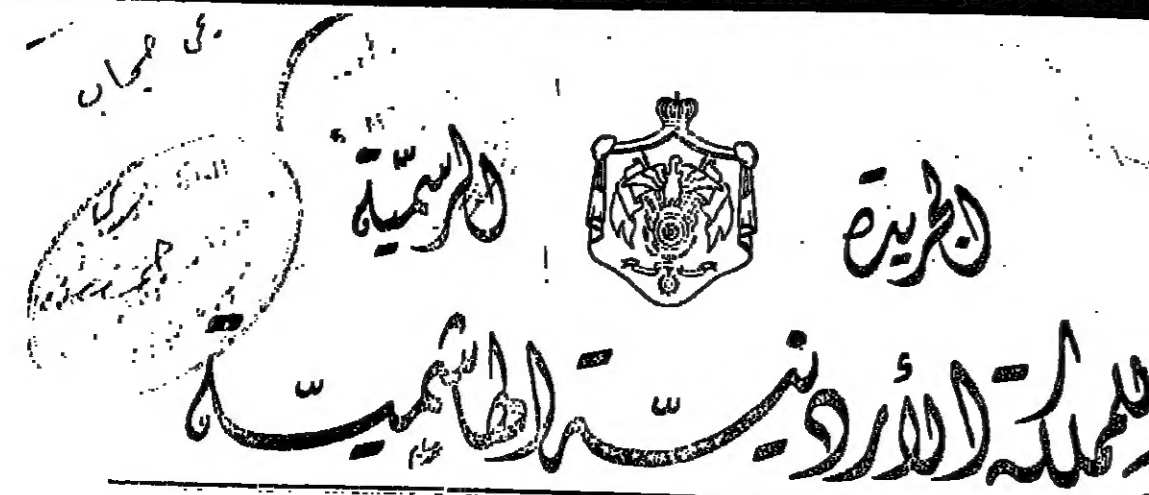 الجريدة الرسميّة
للمملكة الأردنيّة الهاشميّة